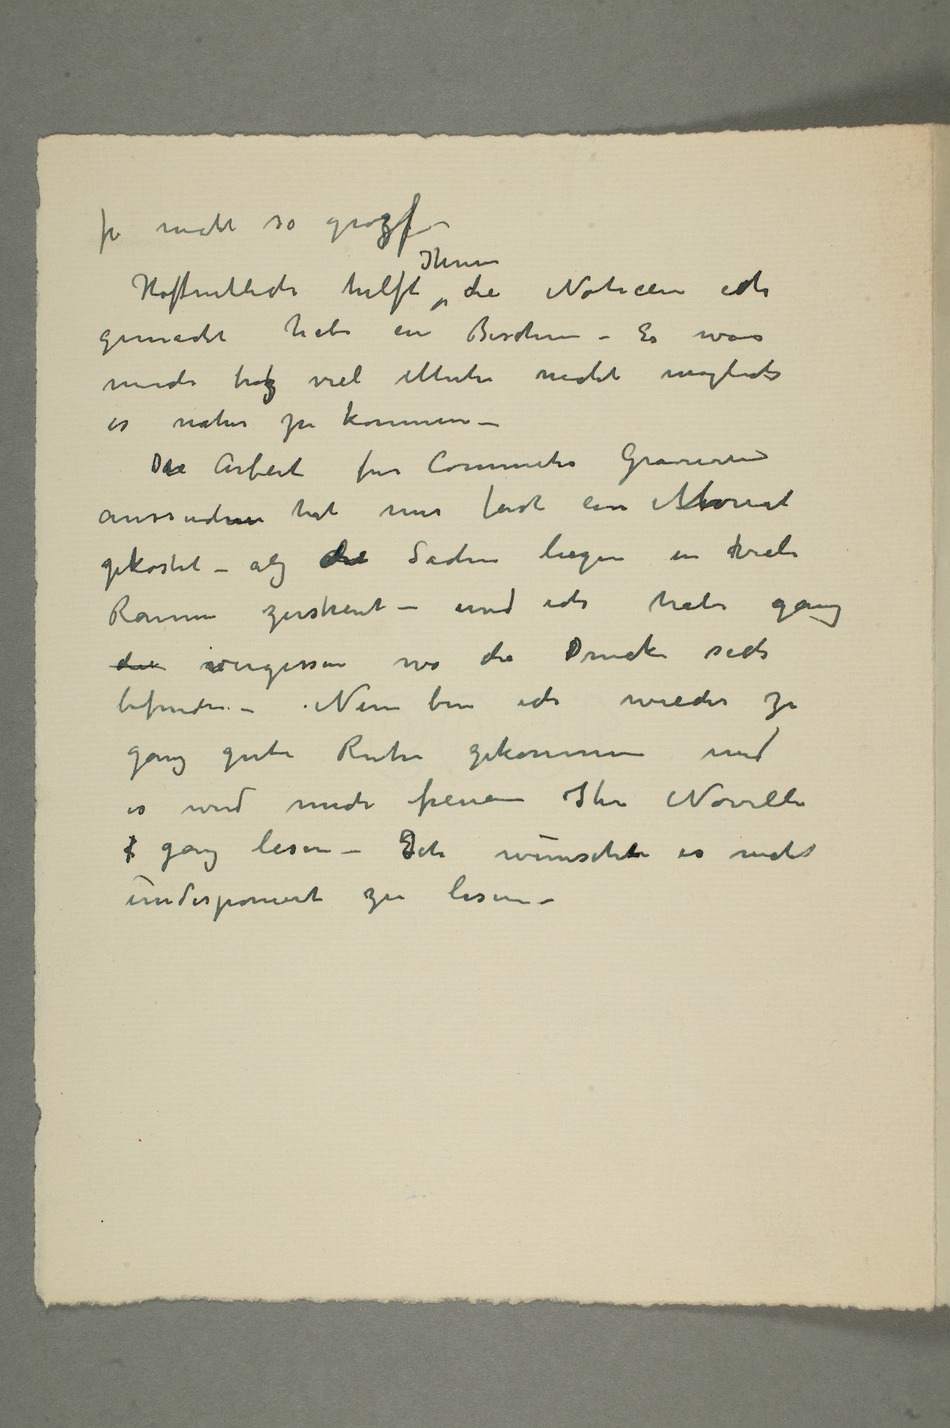 ja nicht so groß –
Hoffentlich hilft Ihnen die Noticen ich
gemacht habe ein Bischen – Es war
mich trotz viel Mühe nicht möglich
es näher zu kommen –
Die Arbeit für Commeter Gravuren
aussuchen hat mir fast ein Monat
gekostet – alg die Sachen liegen in viele
Räume zerstreut – und ich habe ganz
die vergessen wo die Drucke sich
befinden – Nun bin ich wieder zu
ganz gute Ruhe gekommen und
es wird mich freuen Ihre Novelle
z ganz lesen – Ich wünschte es nicht
undisponiert zu lesen –